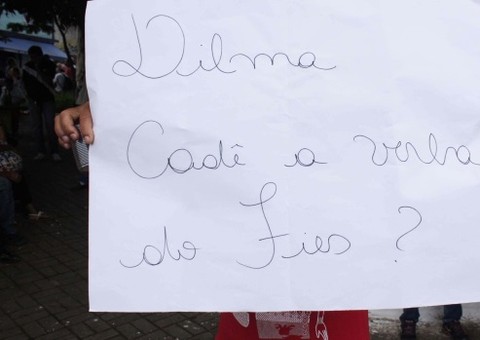 Dilma
Cadê a verba
do Fies?